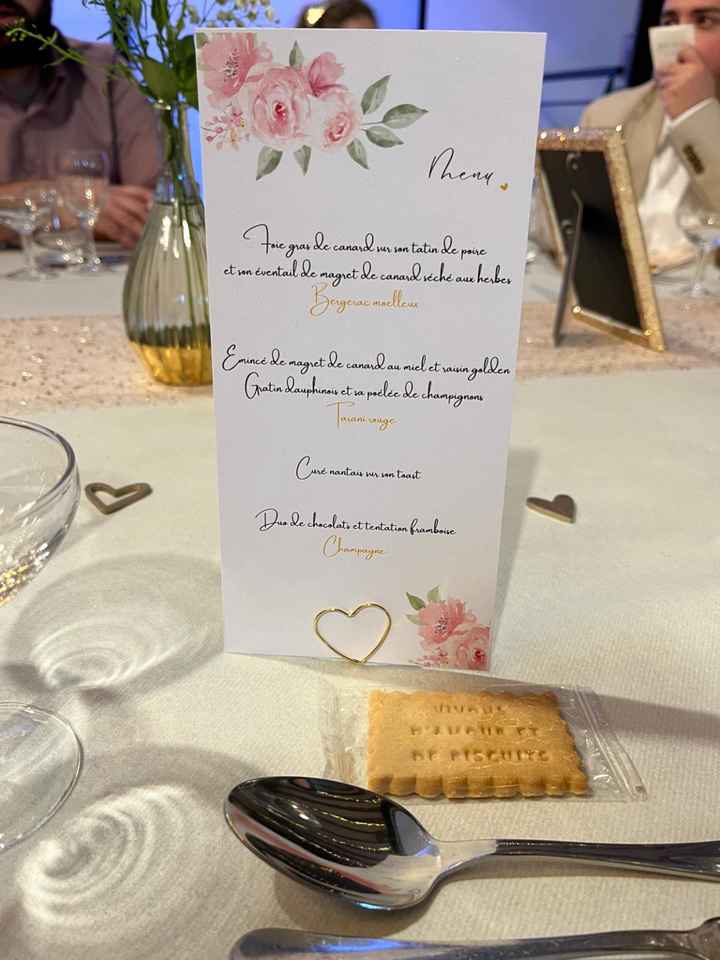 Menu
Foie gras de canard sur son tatin de poire
et son éventail de magret de canard séché aux herbes
Bergerac moelleux
Emincé de magret de canard au miel et raisin golden
Gratin dauphinois et sa poêlée de champignons
Tarani rouge
Curé nantais sur son toast
Duo de chocolats et tentation framboise
Champagne
VIVONS
D'AMOUR ET
DE BISCUITS